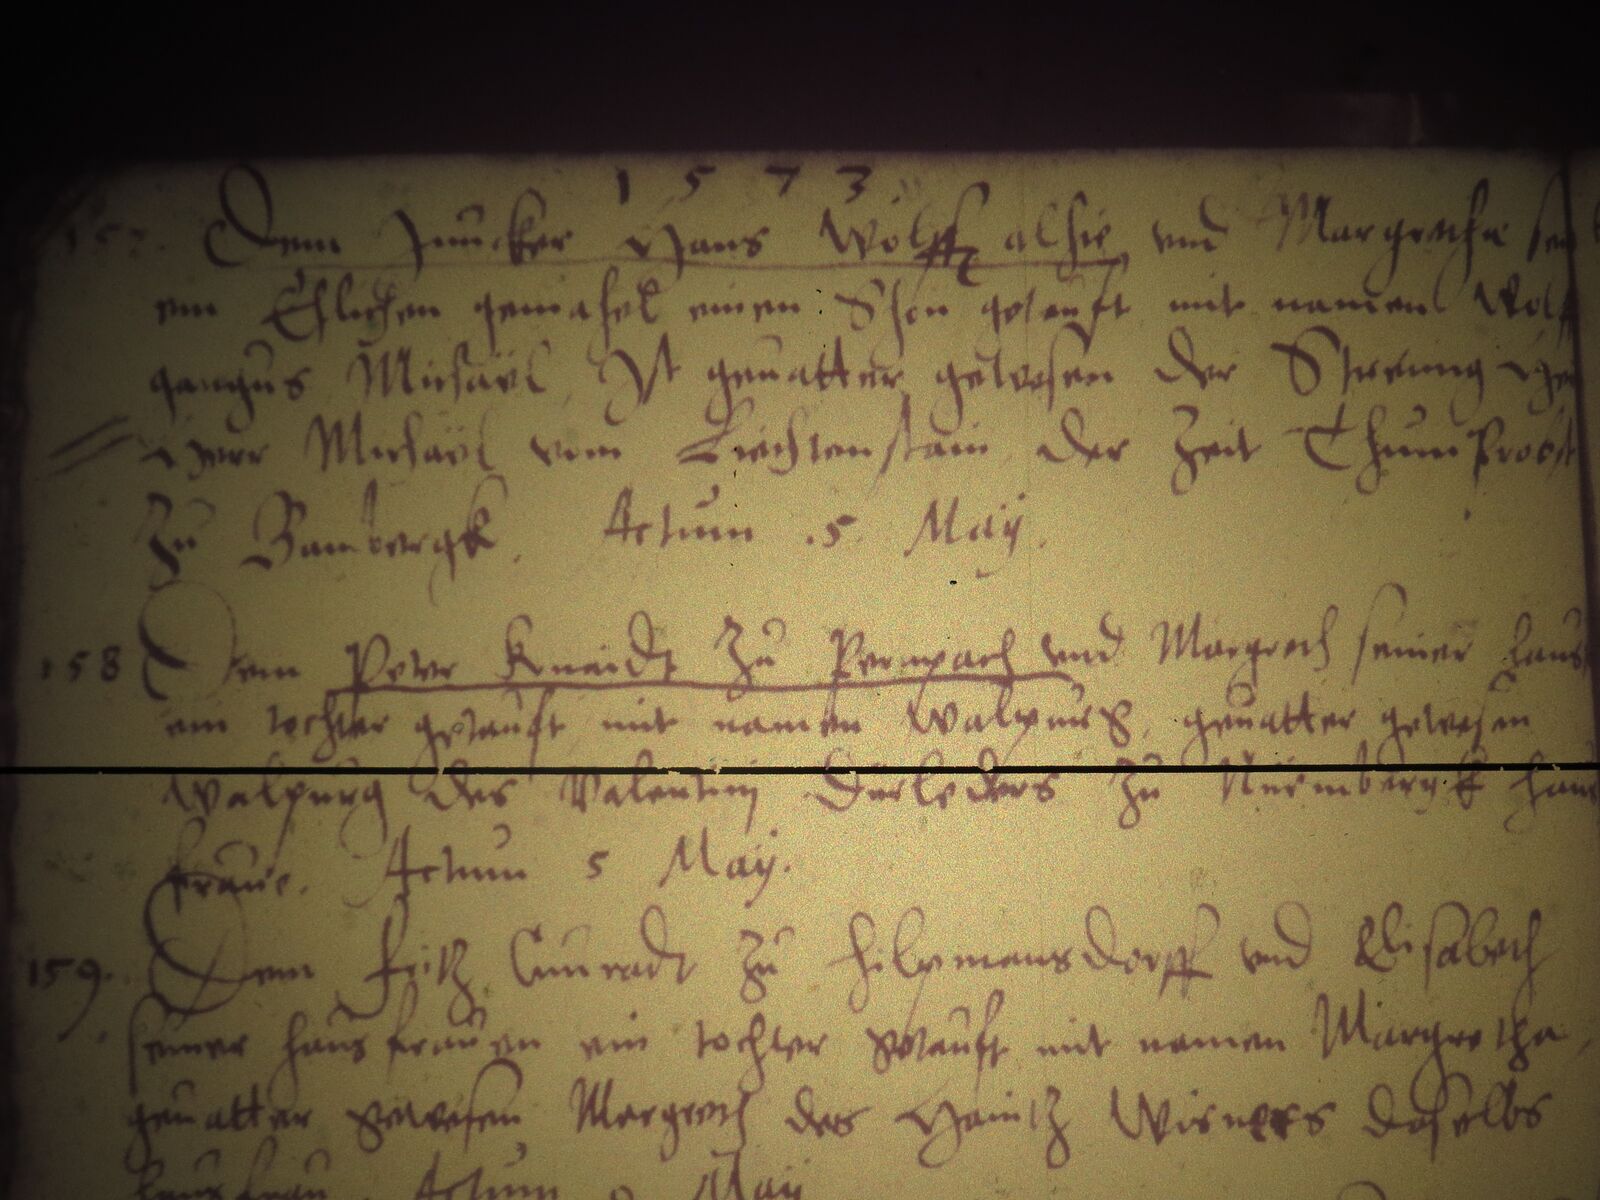 1573
157. Dem Junncker Hans Wolff alhie vnd Margrethe sein
em Ehlichen gemahel einen Shon getaufft mit namen Wolff
gangus Michaël Ist geuatter gewesen der Streung
Herr Michaël vom Liechtenstain der Zeit ThumProbst
Zu Bambergk. Actum .5. Maij.
158 Dem Peter Kneidt Zu Pernpach vnd Margreth seiner haus
ein tochter getaufft mit namen Walpurg, geuatter gewesen
Walpurg des Valentinj Durleders Zu Nürmbergk haus
fraue. Actum 5 Maij.
159. Dem Fritz Cunradt Zu Hilpmansdorff vnd Elisabeth
seiner hausfrauen ein tochter getaufft mit namen Margretha,
geuatter gewesen Margreth des Haintz Wisners daselbs
hausfrau. Actum 9 Maij